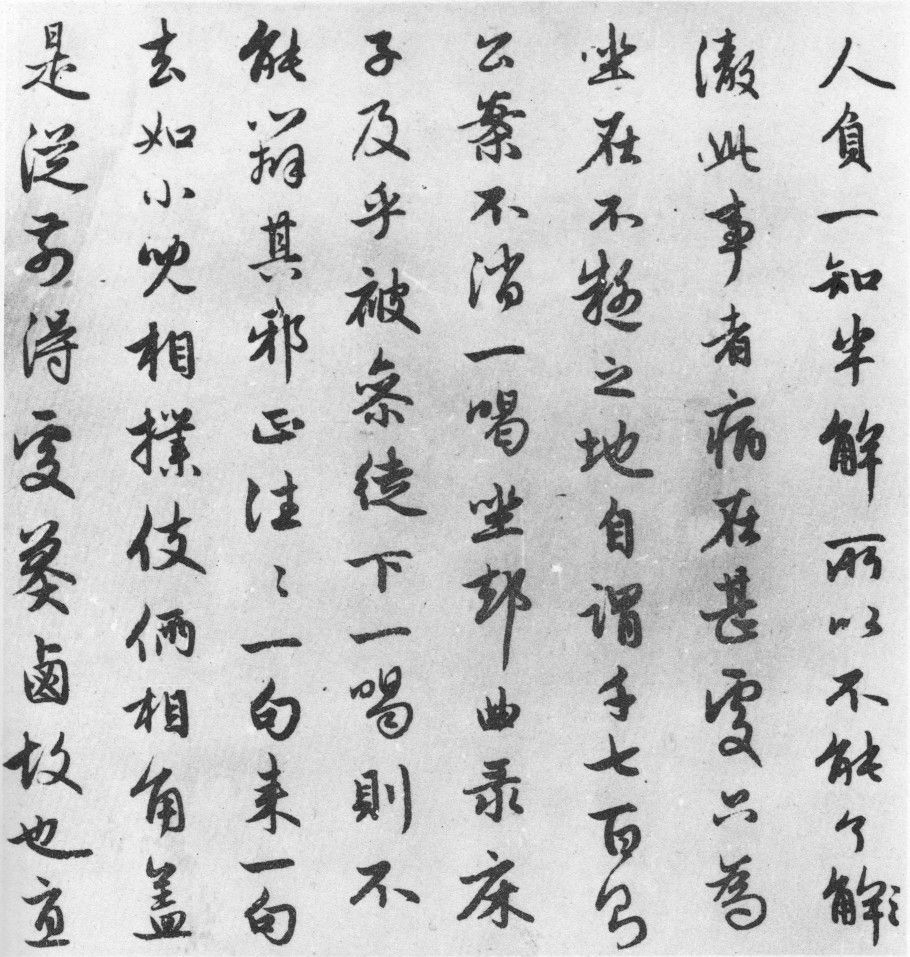 人負一知半解所以不能了解
澈此事者病在甚處只為
坐在不疑之地自謂千七百則
公案不消一喝坐却曲录床
子及乎被參徒下一喝則不
能辨其邪正往〻一句来一句
去如小兒相撲伎倆相角盖
是從前得處莽鹵故也宜